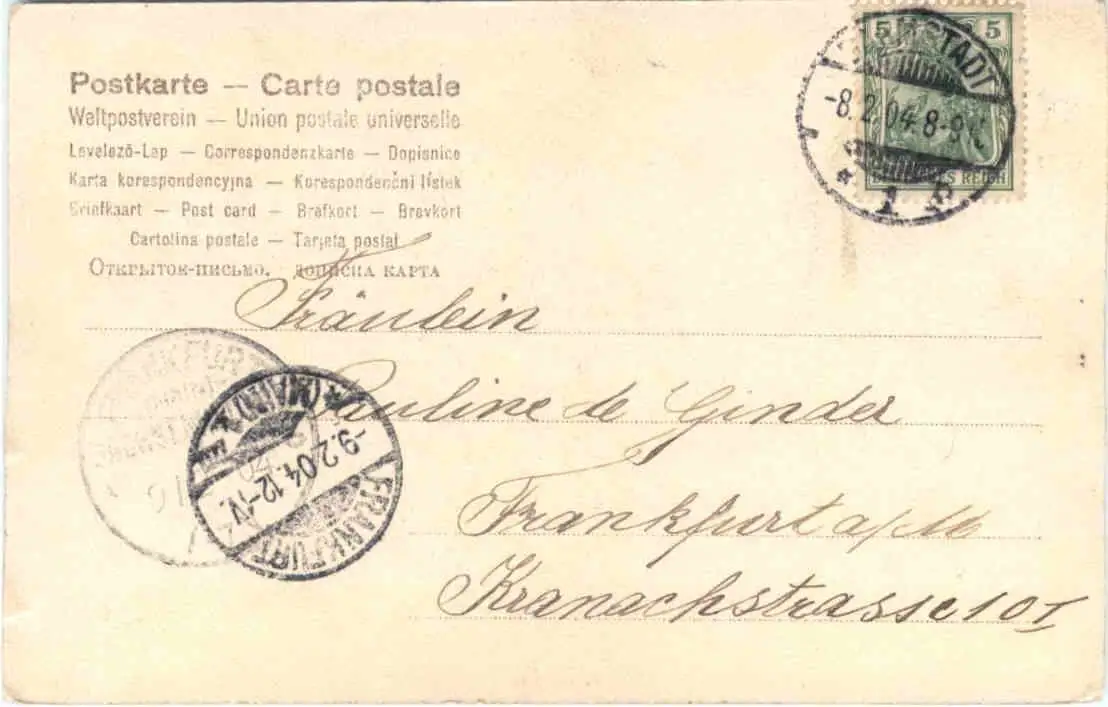 Postkarte — Carte postale
Weltpostverein — Union postale universelle
Levelező-Lap — Correspondenzkarte — Dopisnice
Karta korespondencyjna — Korespondenční lístek
Briefkaart — Post card — Brefkort — Brevkort
Cartolina postale — Tarjeta postal
Открытое-письмо. дописна карта
5 5
-8.2.04.8-9N.
DEUTSCHES REICH
* 1 P
Fräulein
Pauline de Ginder
Frankfurt a/M
Kranachstrasse 10 I
FRANKFURT
* (MAIN) 1
-9.2.04.12-1V.
FRANKFURT